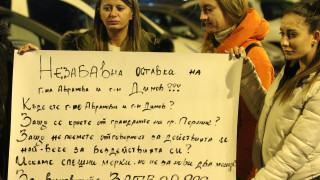 Незабавна оставка на
г-жа Авранова и г-н Димов!!!
Къде сте г-жо Авранова и г-н Димов?
Защо се криете от гражданите на гр. Перник?
Защо не поемете отговорност за действията си
най-вече за бездействията си?
Искаме спешни мерки, но не за нови два месеца
За виновните ЗАТВОР!!!